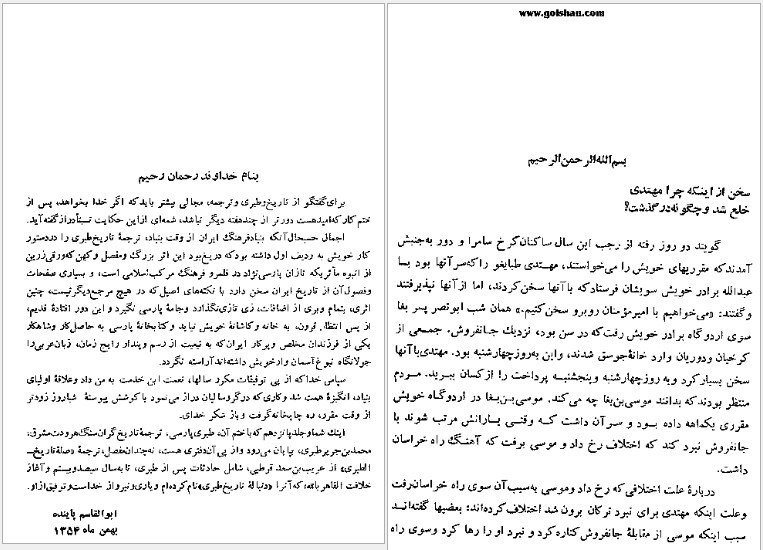 www.golshan.com
بسم‌الله‌الرحمن‌الرحیم
سخن از اینکه چرا مهتدی
خلع شد و چگونه درگذشت؟
گویند دو روز رفته از رجب این سال ساکنان کرخ سامرا و دور به‌جنبش
آمدند که مقرریهای خویش را می‌خواستند، مهتدی طبایغو را که سر آنها بود با
عبدالله برادر خویش سویشان فرستاد که با آنها سخن کردند، اما از آنها نپذیرفتند
و گفتند: «می‌خواهیم با امیرمؤمنان روبرو سخن کنیم.» همان شب ابونصر پسر بغا
سوی اردوگاه برادر خویش رفت که در سن بود، نزدیک جانفروش. جمعی از
کرخیان و دوریان وارد خانهٔ جوسق شدند، و این به‌روز چهارشنبه بود. مهتدی با آنها
سخن بسیار کرد و به روز چهارشنبه و پنجشنبه پرداخت را از کسان ببرید. مردم
منتظر بودند که بدانند موسی بن‌بغا چه می‌کند. موسی بن‌بغا در اردوگاه خویش
مقرری یکماهه داده بود و سر آن داشت که وقتی یارانش مرتب شوند با
جانفروش نبرد کند که اختلاف رخ داد و موسی برفت که آهنگ راه خراسان
داشت.
دربارهٔ علت اختلافی که رخ داد و موسی به‌سبب آن سوی راه خراسان رفت
و علت اینکه مهتدی برای نبرد ترکان برون شد اختلاف کرده‌اند: بعضیها گفته‌اند
سبب اینکه موسی از مقابلهٔ جانفروش کناره کرد و نبرد او را رها کرد و سوی راه
بنام خداوند رحمان رحیم
برای گفتگو از تاریخ طبری و ترجمه، مجالی بیشتر باید که اگر خدا بخواهد، پس از
ختم کار که امید هست دورتر از چند هفته دیگر نباشد، شمه‌ای از این حکایت نسبتاً دراز گفته آید.
اجمال حسب‌حال آنکه بنیاد فرهنگ ایران از وقت بنیاد، ترجمهٔ تاریخ طبری را در دستور
کار خویش به ردیف اول داشته بود که دریغ بود این اثر بزرگ و مفصل و کهن که ورقی زرین
از انبوه مآثریکه تازان پارسی نژاد در قلمرو فرهنگ مرکب اسلامی است، و بسیاری صفحات
و فصول آن از تاریخ ایران سخن دارد با نکته‌های اصیل که در هیچ مرجع دیگر نیست، چنین
اثری، بتمام و بری از اضافات، زی تازی نگذارد و جامهٔ پارسی نگیرد و این دور افتادهٔ قدیم،
از پس انتظار قرون، به خانه و کاشانهٔ خویش نیاید و کتابخانهٔ پارسی به حاصل کار و شاهکار
یکی از فرزندان مخلص و پرکار ایران که به تبعیت از رسم و پندار رایج زمان، زبان عربی را
جولانگاه نبوغ آسمان‌وار خویش داشته‌اند آراسته نگردد.
سپاس خدا که از پی توفیقات مکرر سالها، نعمت این خدمت به من داد و علاقهٔ اولیای
بنیاد، انگیزهٔ همت شد و کاری که در گرو سالیان دراز می‌نمود با کوشش پیوستهٔ شبا روز زودتر
از وقت مقرر، ره چاپخانه گرفت و باز شکر خدای.
اینک شما و جلد پانزدهم که با ختم آن، طبری پارسی، ترجمهٔ تاریخ گران‌سنگ هرودت مشرق،
محمد بن جریر طبری، بپایان می‌رود و از پی آن دفتری هست، نه‌چندان مفصل، ترجمهٔ «صلة تاریخ
الطبری» از عریب بن سعد قرطبی، شامل حادثات پس از طبری، تا به‌سال سیصد و بیستم و آغاز
خلافت القاهر بالله، که آنرا «دنبالهٔ تاریخ طبری» نام کرده‌ام و یاری و نیرو از خداست و توفیق از او.
ابوالقاسم پاینده
بهمن ماه ۱۳۵۴